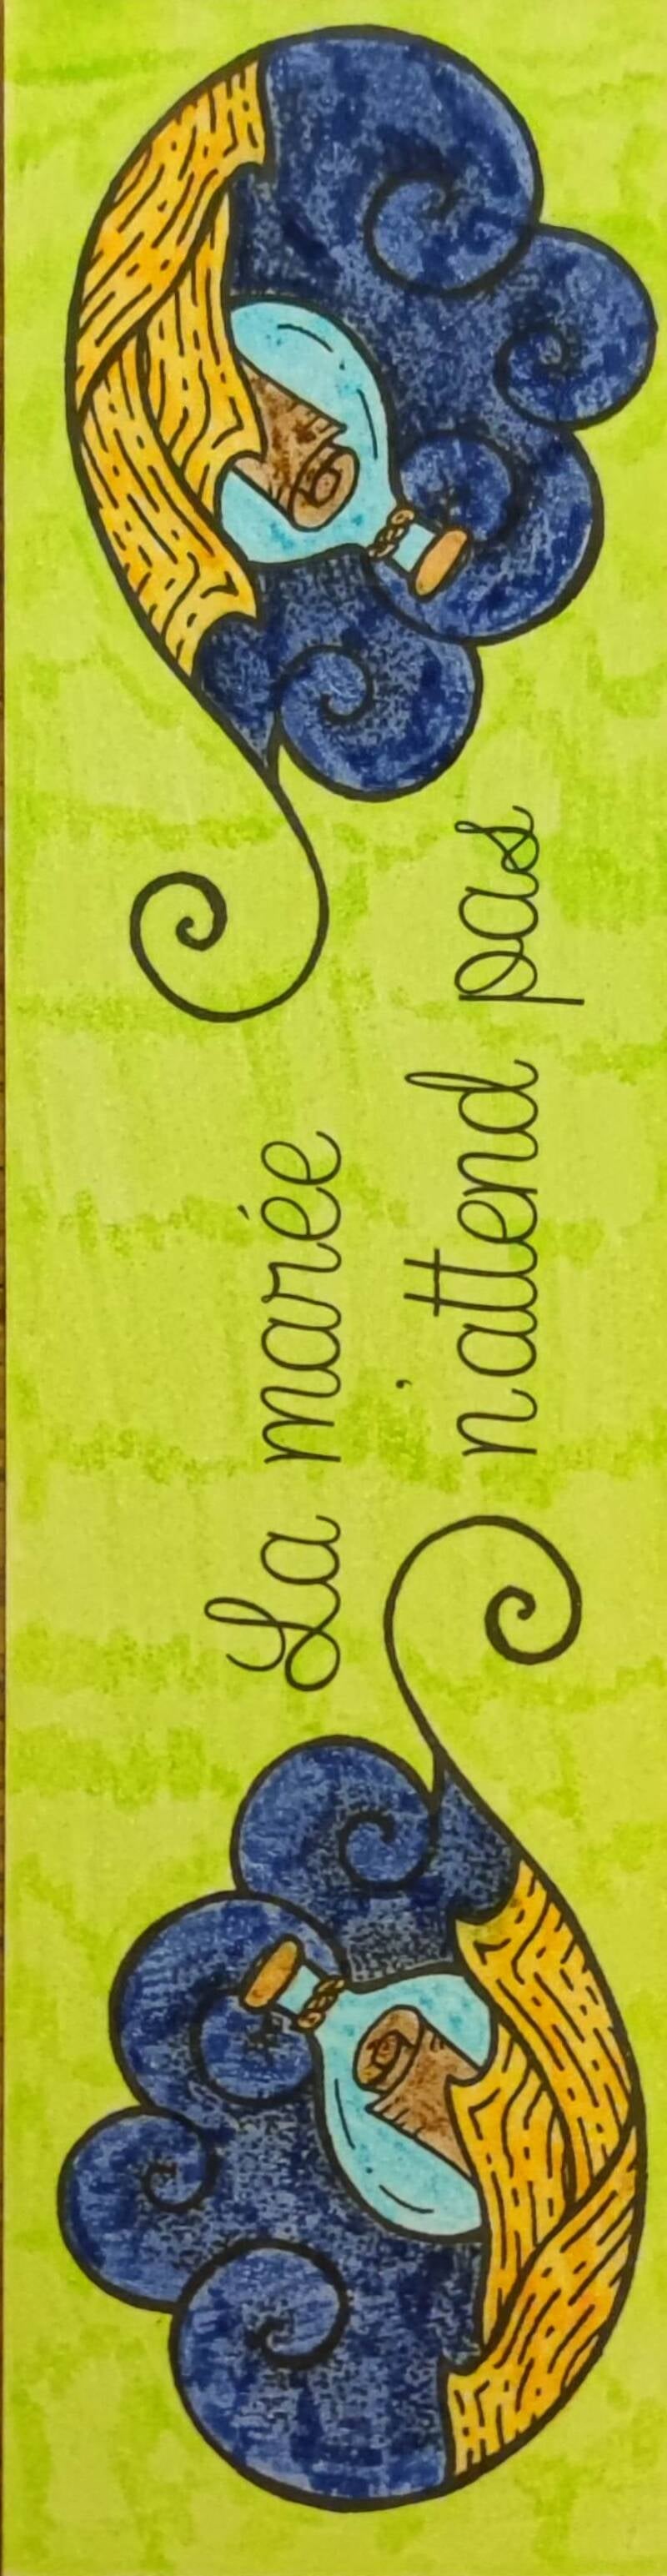 La marée
n'attend pas